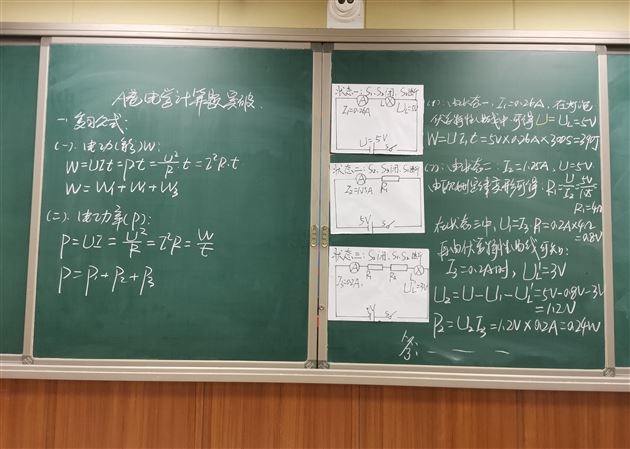 A卷电学计算题突破
一.复习公式:
(一).电功(能)W:
W=UIt=Pt=U²/R·t=I²R·t
W=W₁+W₂+W₃
(二).电功率(P):
P=UI=U²/R=I²R=W/t
P=P₁+P₂+P₃
状态一:S₁、S₂闭,S₃断
A
L
I₁=0.26A
U_L=5V
U=5V
状态二:
A
R₁
I₂=1.25A
5V
状态三:
A
R₁
R₂
I₃=0.2A
U'_L=3V
(1):由状态一,I₁=0.26A,在灯泡
伏安特性曲线中可得U=U_L=5V
W=UI₁t=5V×0.26A×300S=390J
(2):由状态二,I₂=1.25A,U=5V
由欧姆定律变形可得:R₁=U/I₂=5V/1.25
R₁=4Ω
在状态三中,U₁=I₃R₁=0.2A×4Ω
=0.8V
再由伏安特性曲线可知:
I₃=0.2A时,U'_L=3V
U₂=U-U₁-U'_L=5V-0.8V-3V
=1.2V
P₂=U₂I₃=1.2V×0.2A=0.24W
答: